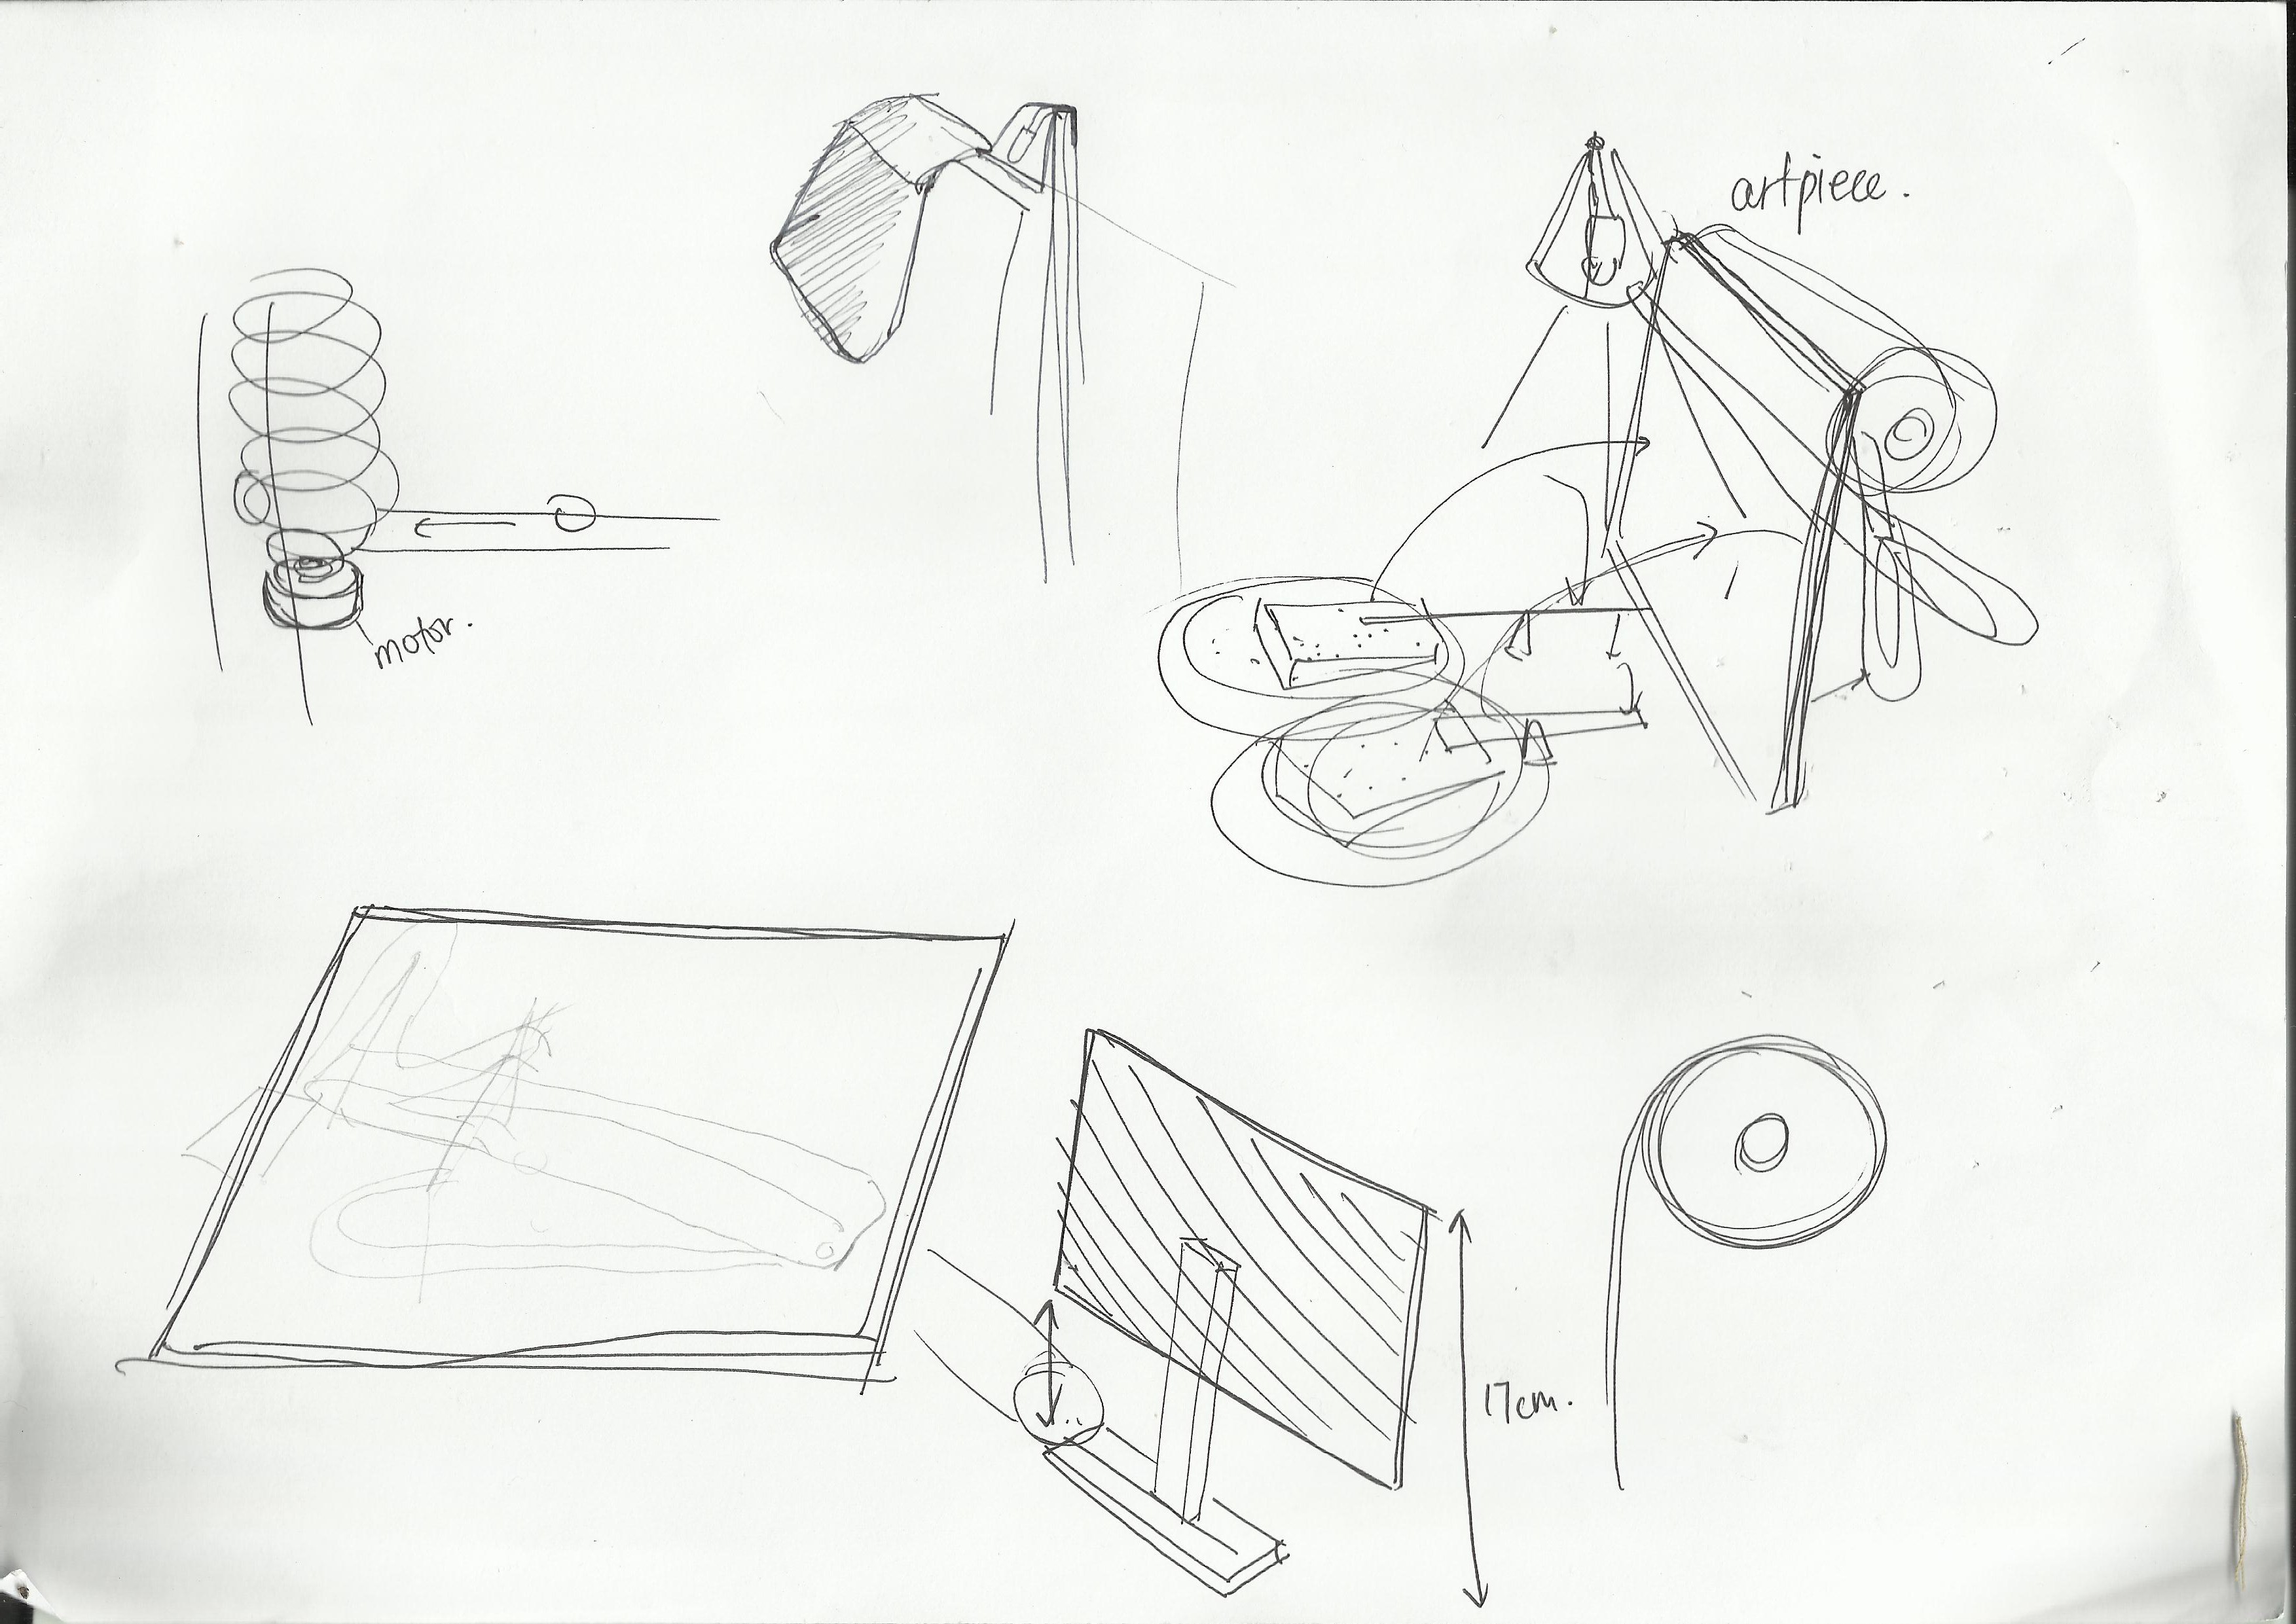 artpiece.
motor.
17cm.